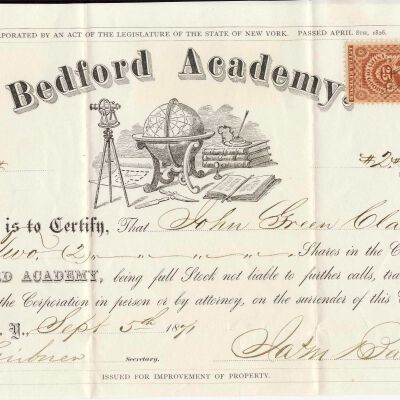 ORPORATED BY AN ACT OF THE LEGISLATURE OF THE STATE OF NEW YORK. PASSED APRIL 8TH, 1826.
Bedford Academy,
25
#2
is to Certify, That John Green Cla
Two (2) " " " " Shares in the C
D ACADEMY, being full Stock not liable to further calls, tra
the Corporation in person or by attorney, on the surrender of this
Y., Sept 5th 1871
Secretary.
ISSUED FOR IMPROVEMENT OF PROPERTY.